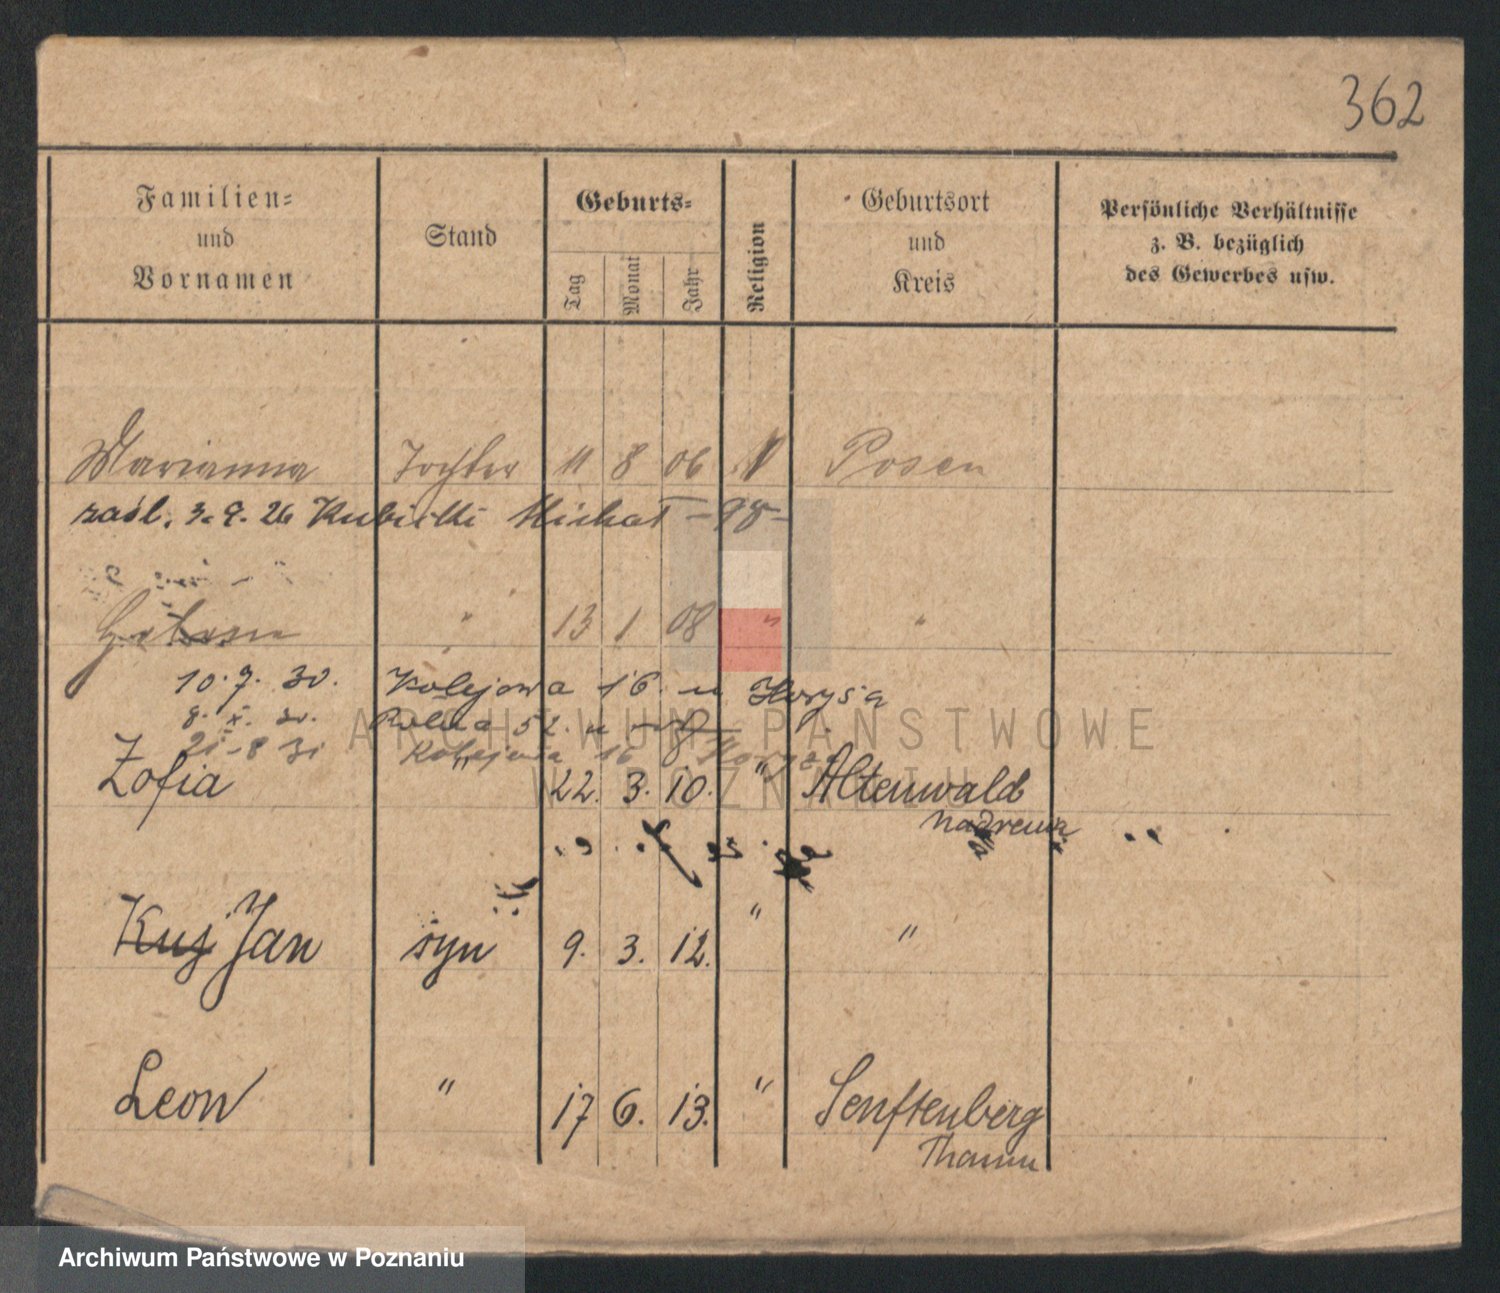 362
Familien=
und
Vornamen
Stand
Geburts=
Tag
Monat
Jahr
Religion
Geburtsort
und
Kreis
Persönliche Verhältnisse
z. B. bezüglich
des Gewerbes usw.
Marianna Tochter 11 8 06 Posen
zaśl. 3. 9. 26 Kubicki Michał – 98 –
" 13 1 08 " "
10. 7. 30. Kolejowa 16 u
8. X. 30. 52. u
21-8 31 Kolejowa 16
Zofia " 22. 3. 10. " Altenwald
Kuj Jan syn 9. 3. 12. " "
Leon " 17 6. 13. " Senftenberg
Thamm
ARCHIWUM PAŃSTWOWE
W POZNANIU
Archiwum Państwowe w Poznaniu